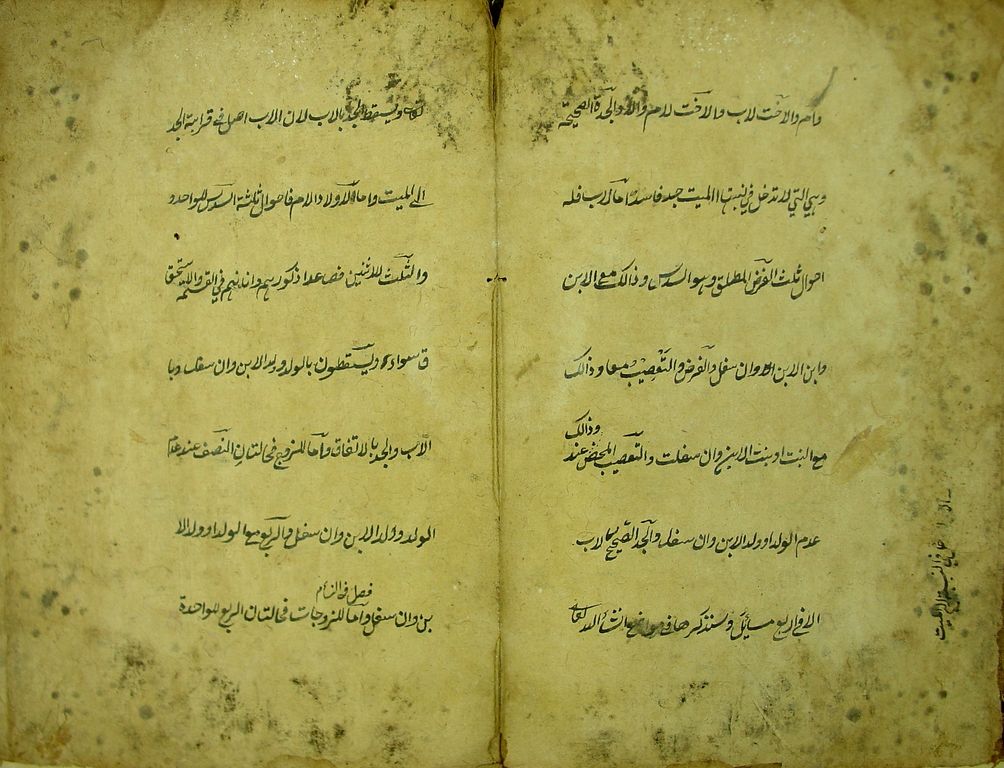 وام والاخت لاب والاخت لام والام والجدة الصحيحة
وهي التي لا تدخل في نسبتها الى الميت جد فاسد اما الاب فله
احوال ثلث الفرض المطلق وهو السدس وذالك مع الابن
وابن الابن وان سفل والفرض والتعصيب معا وذالك
وذالك
مع البنت او بنت الابن وان سفلت والتعصيب المحض عند
عدم الولد او ولد الابن وان سفل والجد الصحيح كالاب
الا في اربع مسائل وسنذكرها في مواضعها انشاء الله تعالى
تعالى ويسقط الجد بالاب لان الاب اصل في قرابة الجد
الى الميت واما لاولاد الام فاحوال ثلثة السدس للواحد و
والثلث للاثنين فصاعدا ذكورهم واناثهم في القسمة والاستحقا
ق سواء ويسقطون بالولد وولد الابن وان سفل وبا
الاب والجد بالاتفاق واما للزوج فحالتان النصف عند عدم
الولد وولد الابن وان سفل والربع مع الولد او ولد الا
فصل في النساء
بن وان سفل واما للزوجات فحالتان الربع للواحدة